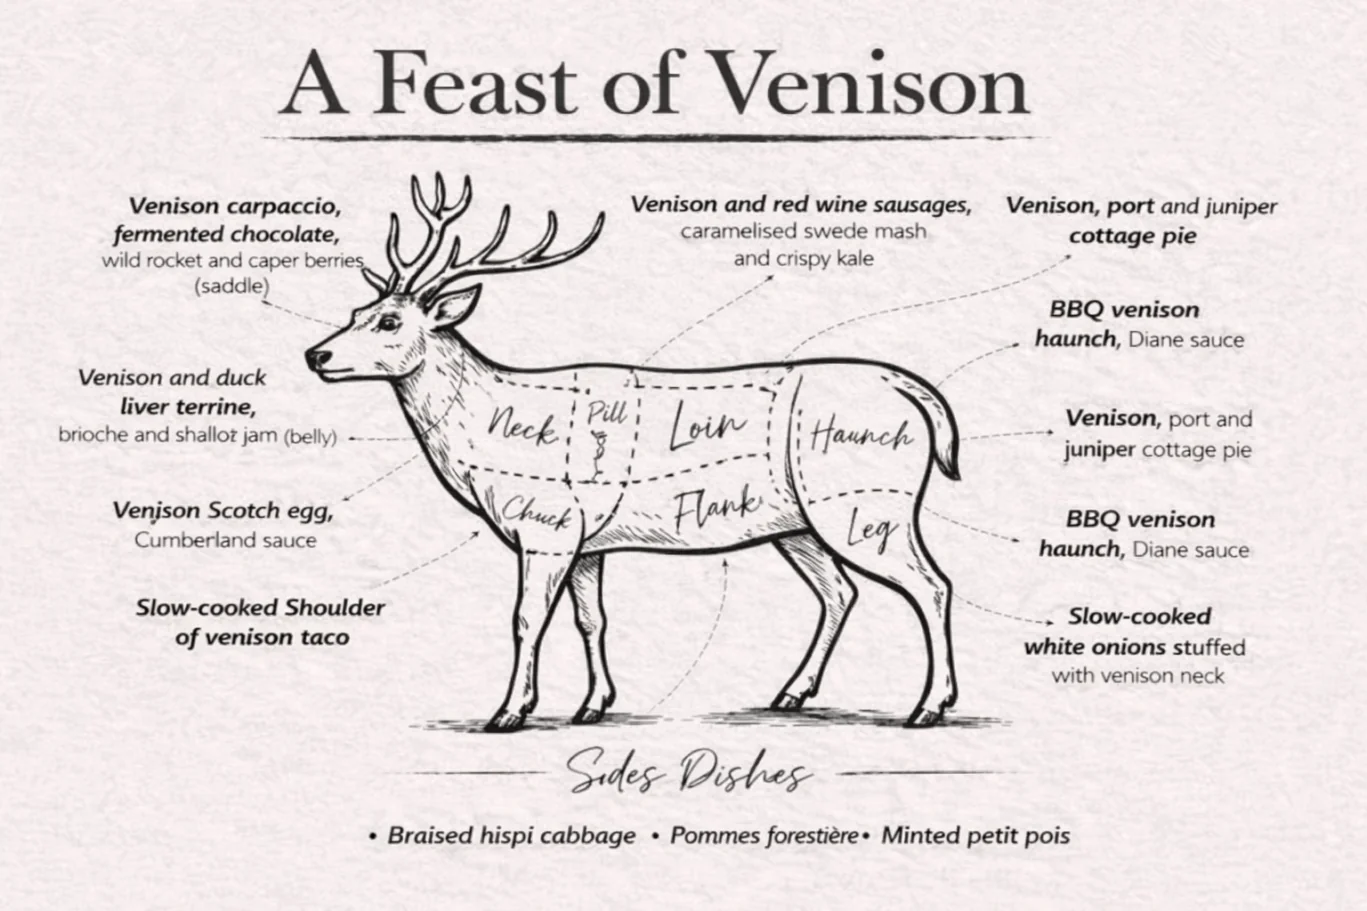 A Feast of Venison
Venison carpaccio,
fermented chocolate,
wild rocket and caper berries
(saddle)
Venison and red wine sausages,
caramelised swede mash
and crispy kale
Venison, port and juniper
cottage pie
BBQ venison
haunch, Diane sauce
Venison and duck
liver terrine,
brioche and shallot jam (belly)
Venison, port and
juniper cottage pie
Neck
Pill
Loin
Haunch
Venison Scotch egg,
Cumberland sauce
Chuck
Flank
Leg
BBQ venison
haunch, Diane sauce
Slow-cooked Shoulder
of venison taco
Slow-cooked
white onions stuffed
with venison neck
Sides Dishes
• Braised hispi cabbage • Pommes forestière • Minted petit pois